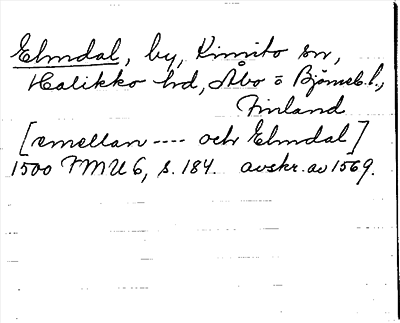 Elmdal, by, Kimito sn,
Halikko hd, Åbo o Björneb. l.,
Finland
[emellan ---- och Elmdal]
1500 FMU 6, s. 184. avskr. av 1569.